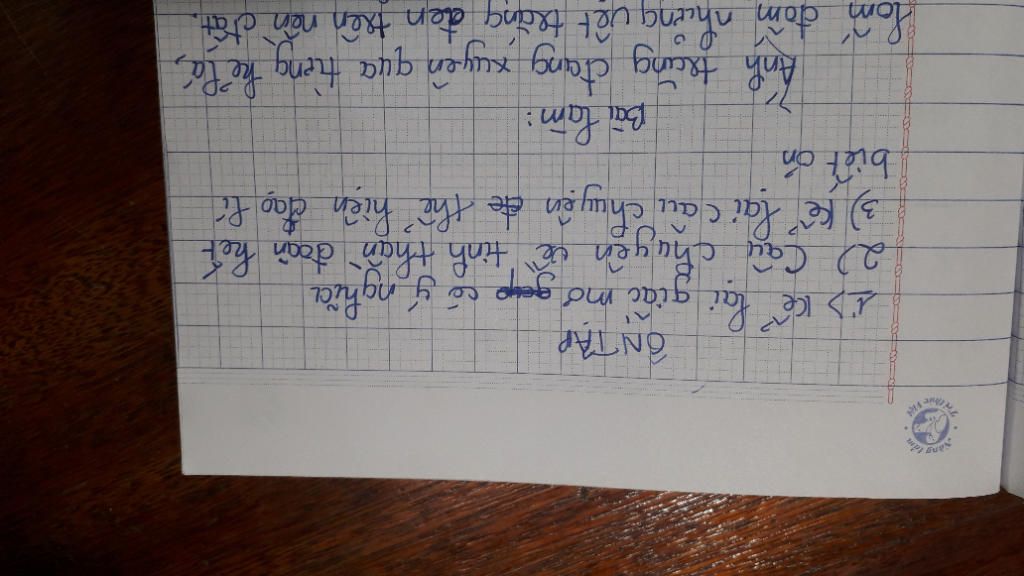 Nâng tầm
Tri thức Việt
ÔN TẬP
1) Kể lại giấc mơ có ý nghĩa
2) Câu chuyện về tinh thần đoàn kết
3) Kể lại câu chuyện thể hiện đạo lí
biết ơn
Bài làm:
Ánh trăng đang xuyên qua từng kẽ lá,
lốm đốm những vệt trắng đen trên nền đất.